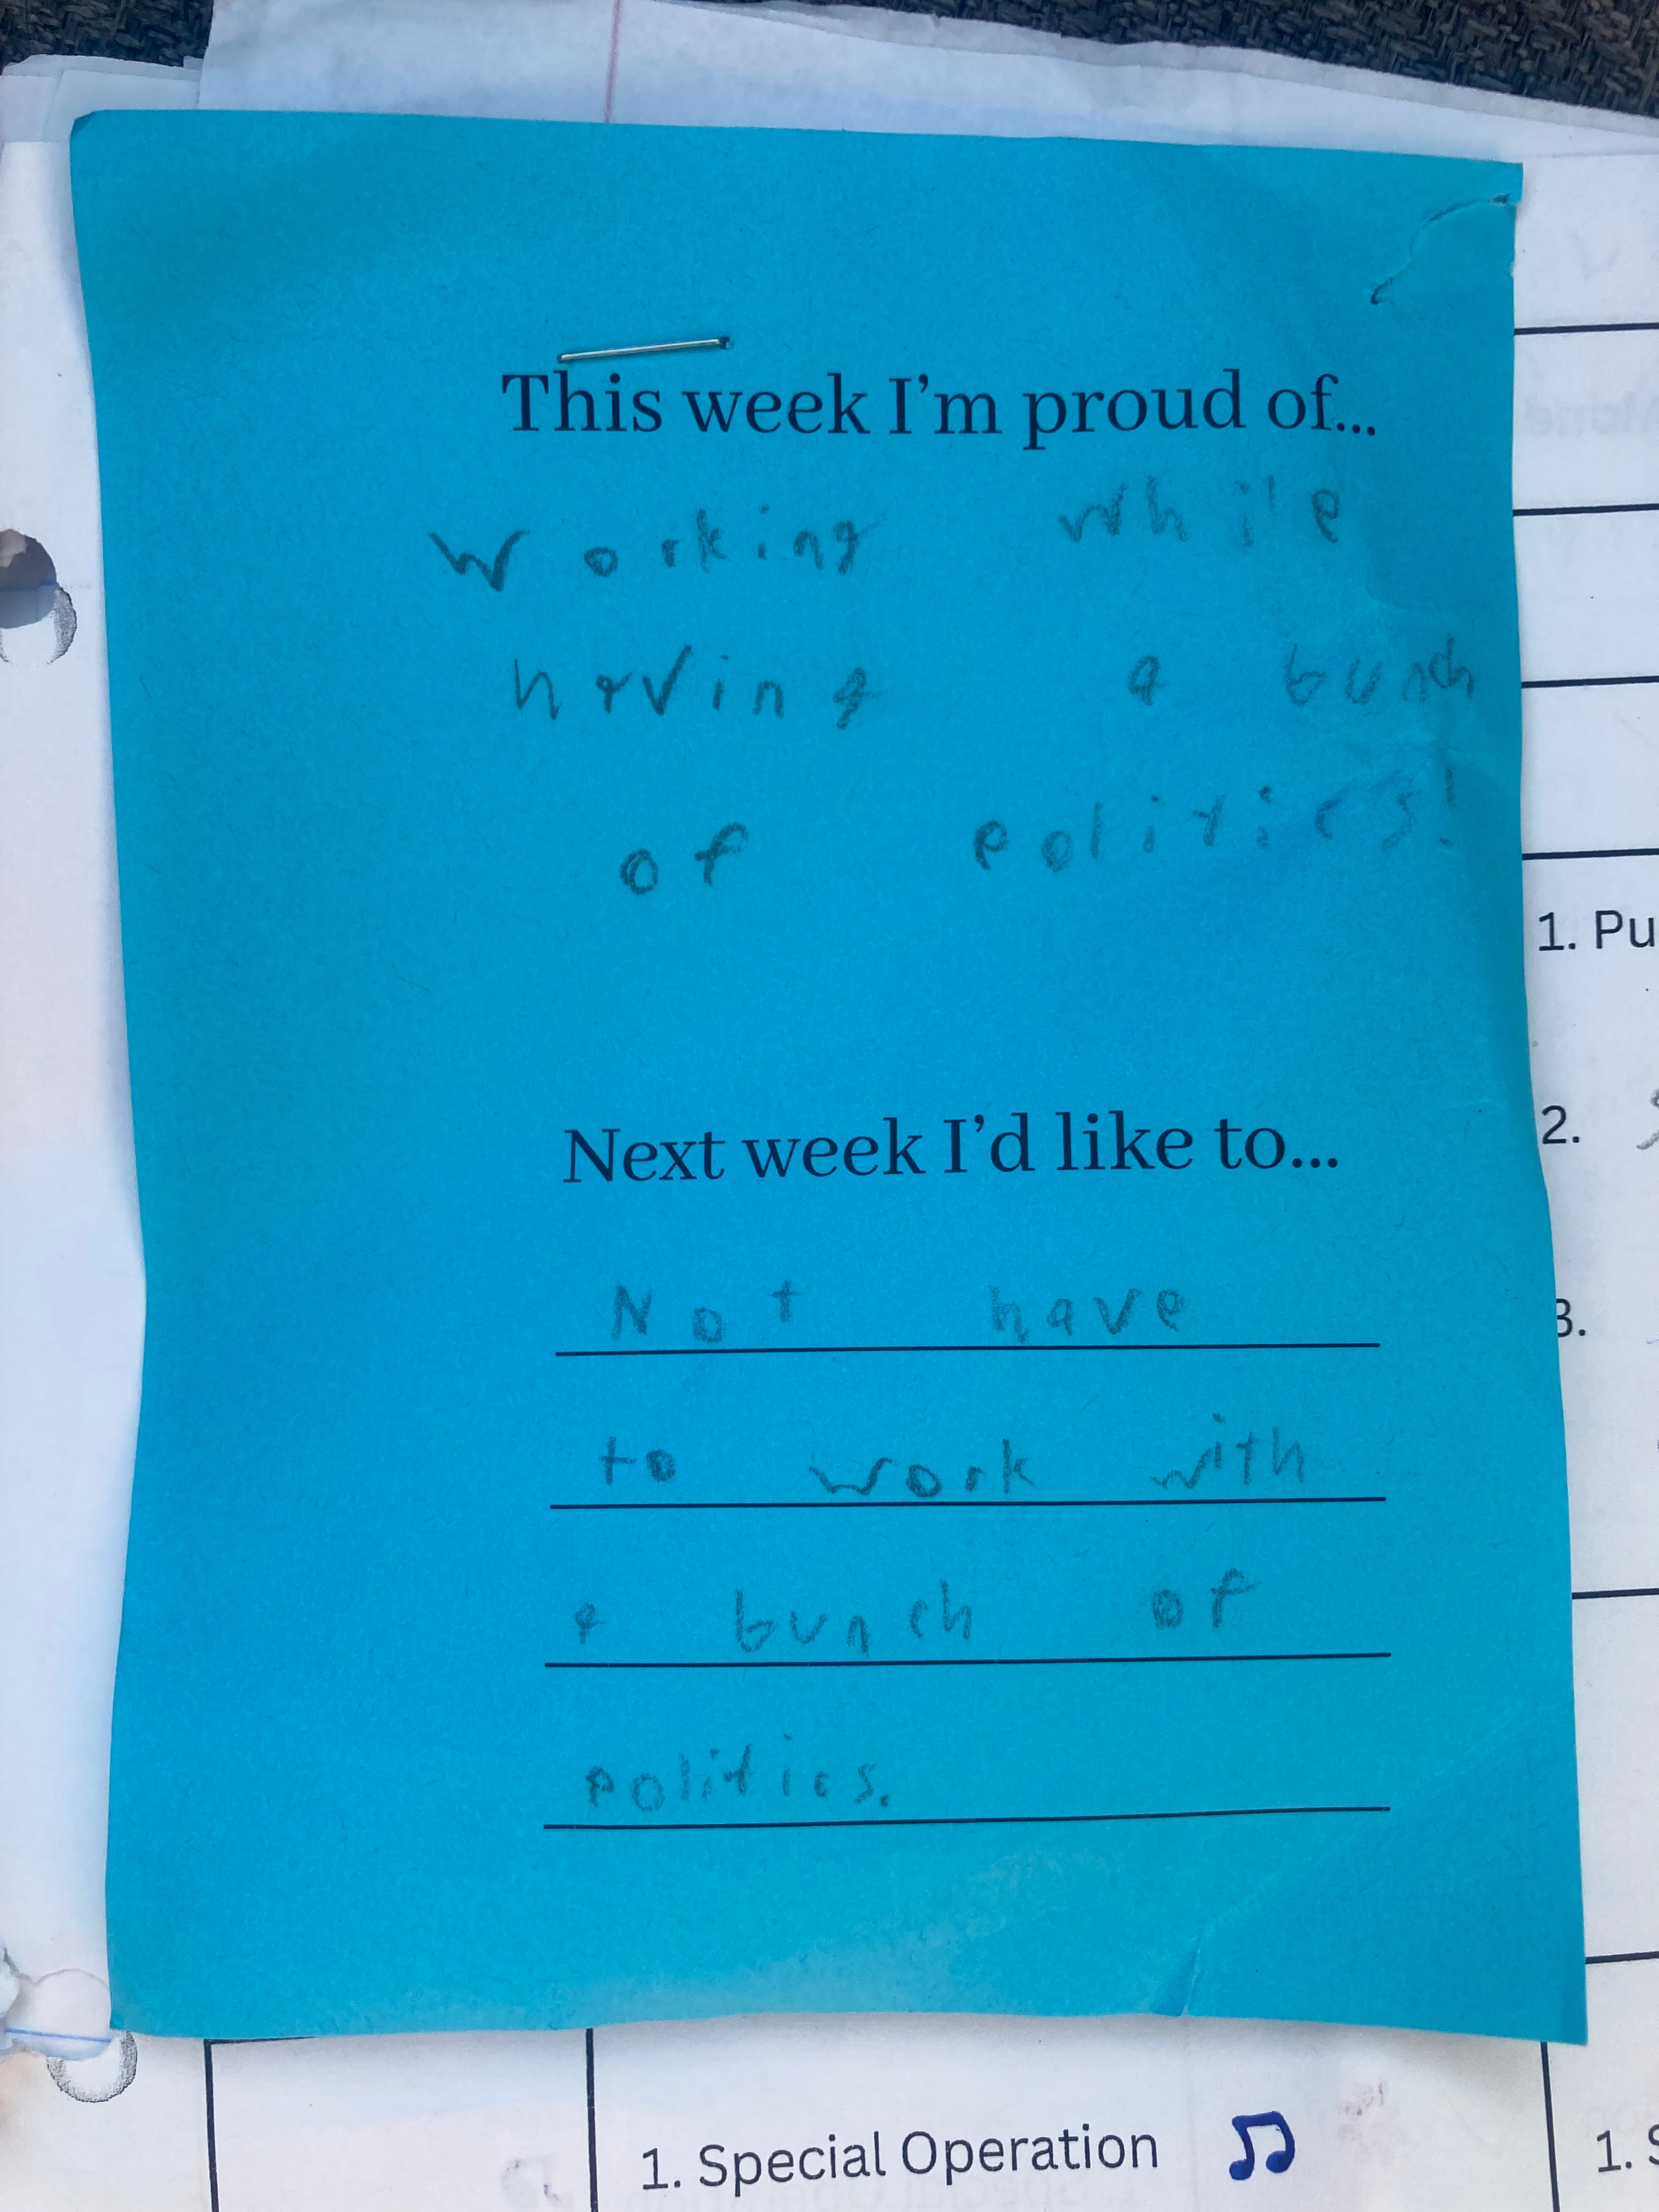 This week I'm proud of...
working while
having a bunch
of politics!
1. Pu
2.
Next week I'd like to...
3.
Not have
to work with
a bunch of
politics.
1. Special Operation
1. S